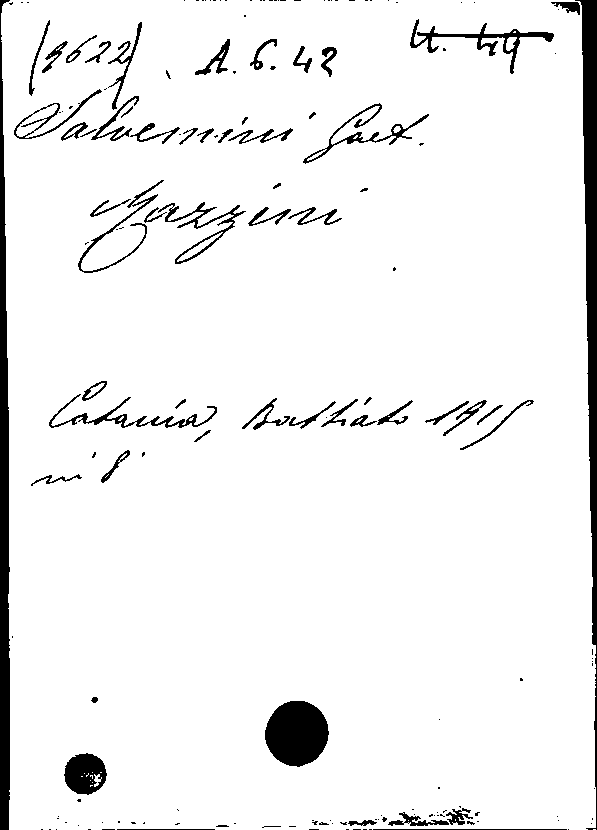 (3622) A. 6. 42 U. 49
Salvemini Gaet.
Mazzini
Catania, Battiato 1915
in 8°